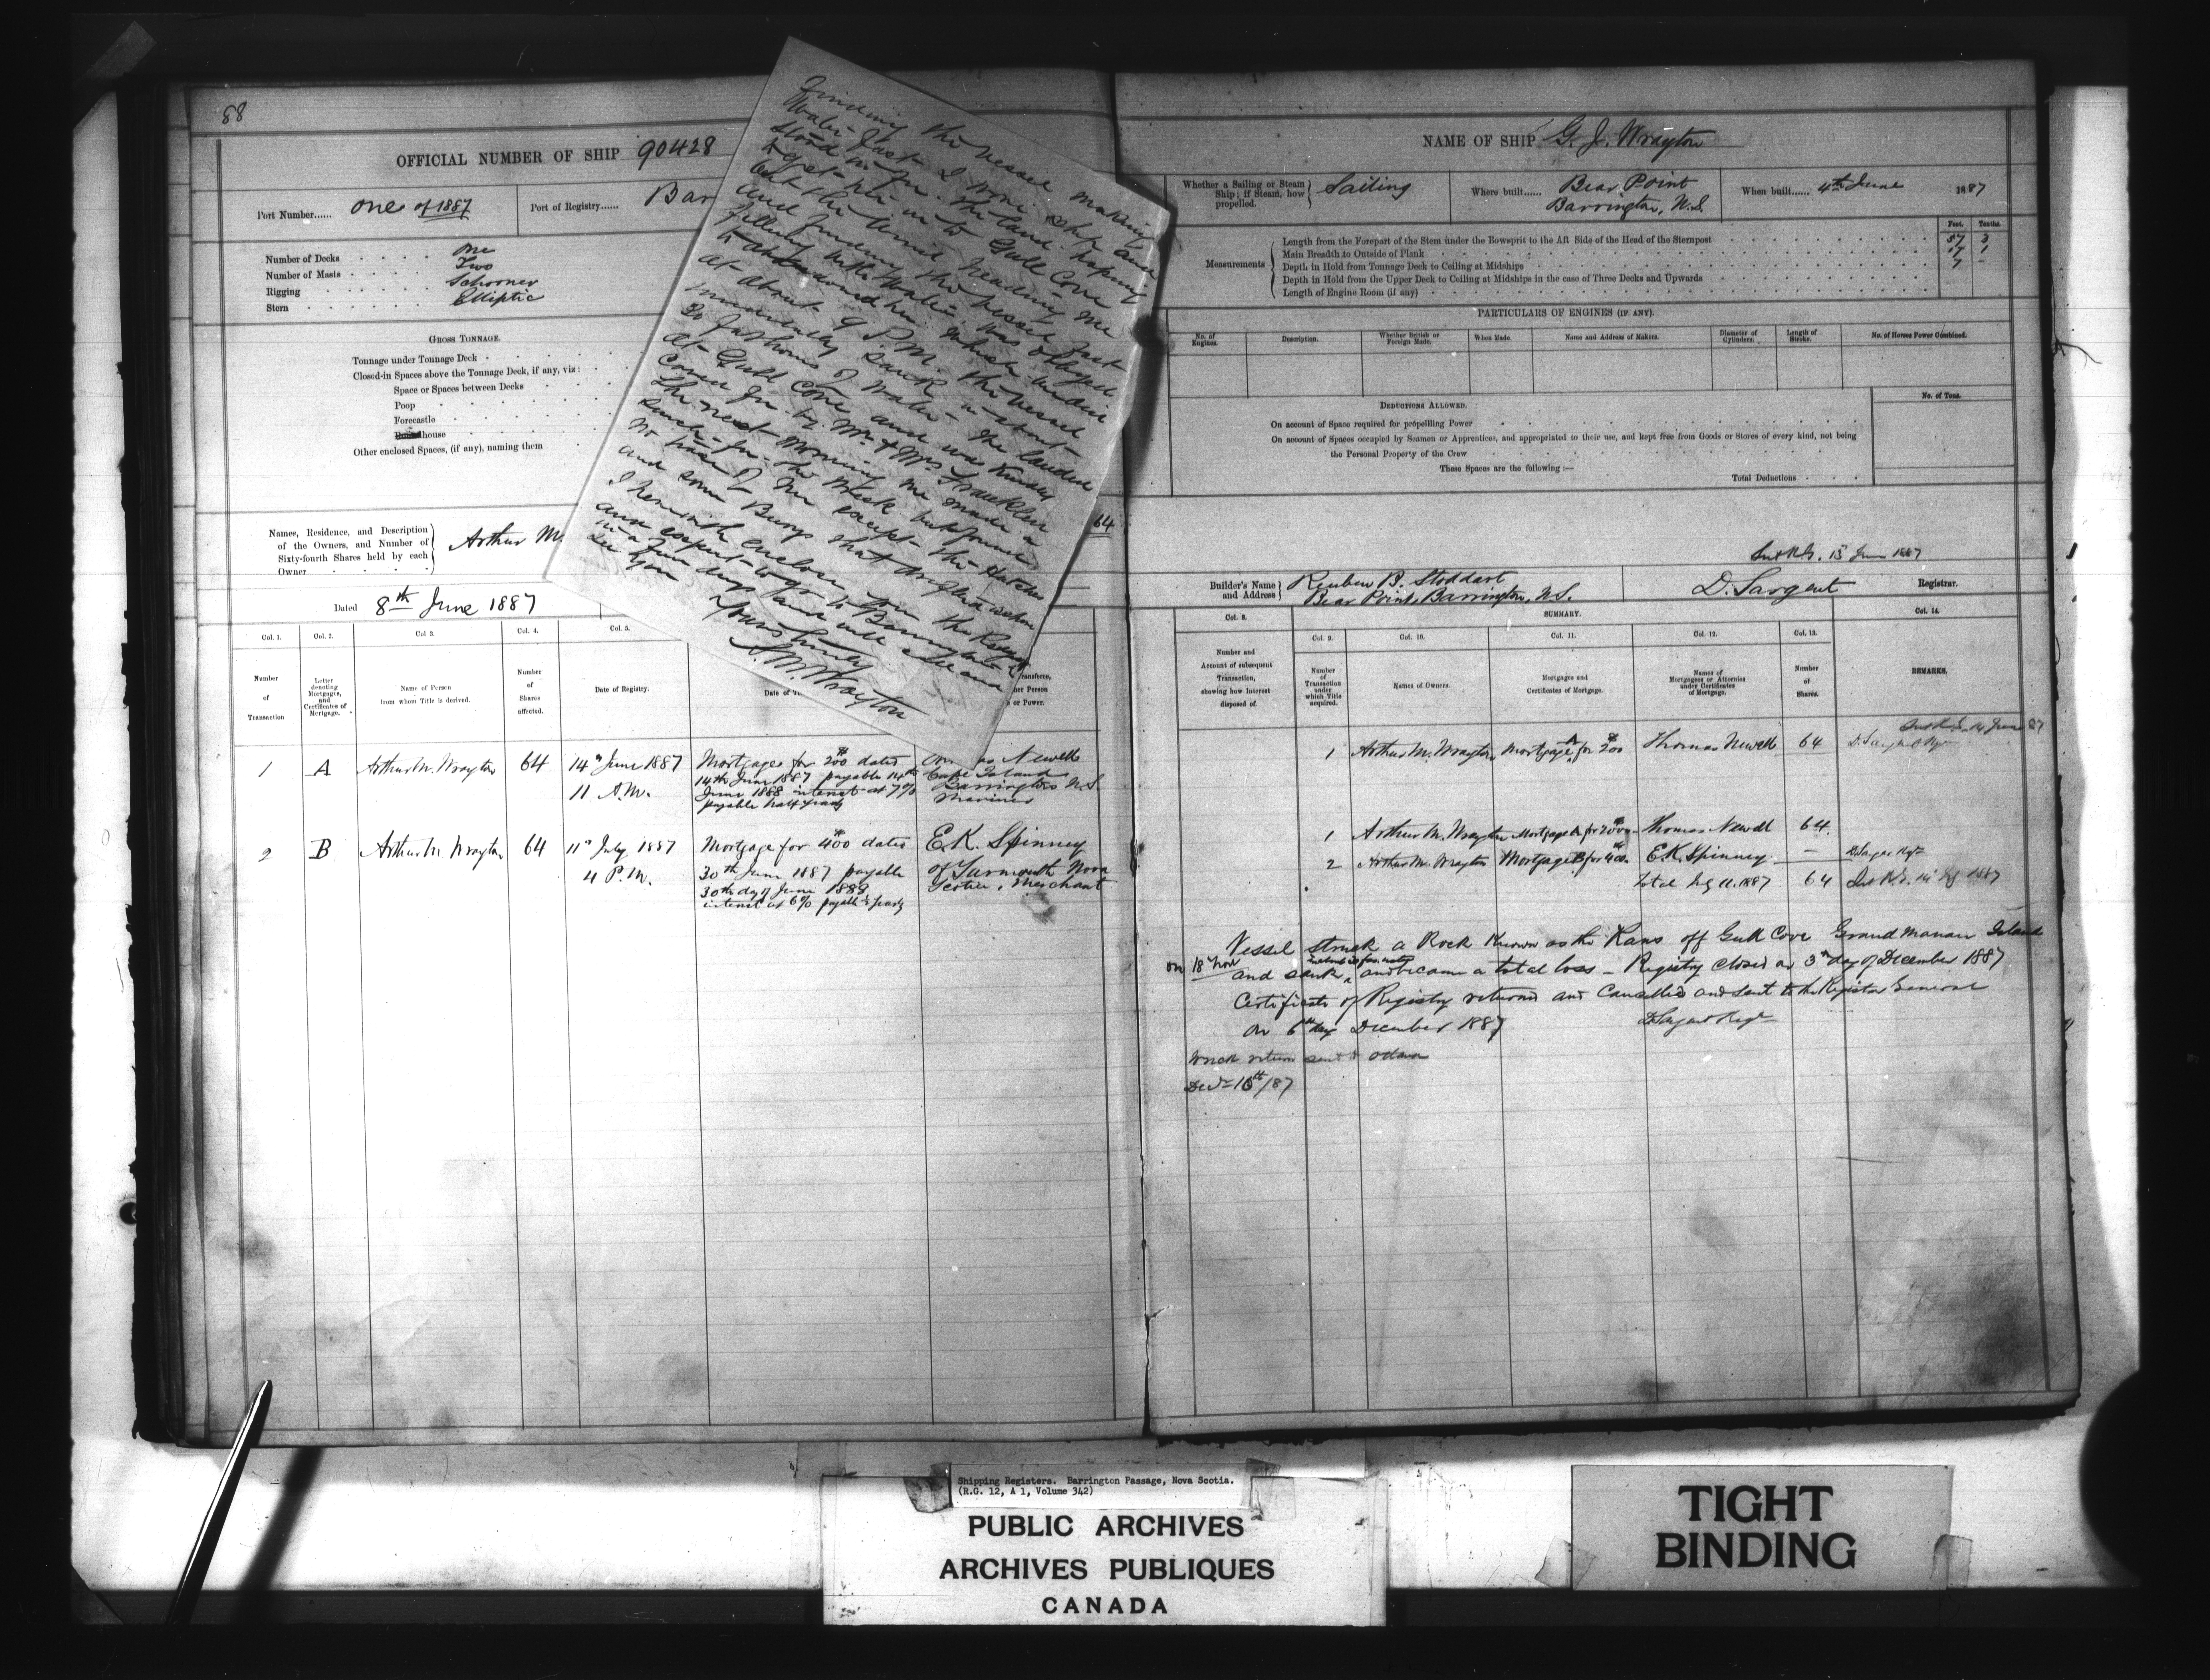 88
OFFICIAL NUMBER OF SHIP 90428
Port Number...... One of 1887
Port of Registry...... Bar
Number of Decks One
Number of Masts Two
Rigging Schooner
Stern Elliptic
GROSS TONNAGE.
Tonnage under Tonnage Deck
Closed-in Spaces above the Tonnage Deck, if any, viz:
Space or Spaces between Decks
Poop
Forecastle
house
Other enclosed Spaces, (if any), naming them
Names, Residence, and Description
of the Owners, and Number of
Sixty-fourth Shares held by each
Owner
Arthur M.
64
Dated 8th June 1887
Col. 1. Col. 2. Col 3. Col. 4. Col. 5.
Number of Transaction
Letter denoting Mortgages, and Certificates of Mortgage.
Name of Person from whom Title is derived.
Number of Shares affected.
Date of Registry.
1 A Arthur M. Wrayton 64 14th June 1887
11 A.M.
Mortgage for 200 dated
14th June 1887 payable 14th
June 1888 interest at 7%
payable half yearly
as Newell
Cape Island
Barrington N.S.
Mariner
2 B Arthur M Wrayton 64 11th July 1887
4 P.M.
Mortgage for 400 dated
30th June 1887 payable
30th day of June 1888
interest at 6% payable yearly
E.K. Spinney
of Yarmouth Nova
Scotia, Merchant
finding the vessel making
water fast I wore ship and
stood in for the land hoping
to get her in to Gull Cove
but the wind heading me
and finding the vessel fast
filling with water was obliged
to abandoned her which we did
at about 9 P.M. the vessel
immediately sank in about
30 fathoms of water. We landed
at Gull Cove and was kindly
cared for by Mr & Mrs Franklin
the next morning we made a
search for the wreck but found
no trace of her except the Hatches
and some Buoys that
I herewith enclose you the
and expect to go to Barrington
in a few days and will call and
see you
Yours truly
A. M. Wrayton
NAME OF SHIP G. J. Wrayton
Whether a Sailing or Steam
Ship; if Steam, how
propelled.
Sailing
Where built...... Bear Point
Barrington, N.S.
When built...... 4th June 1887
Feet. Tenths.
Measurements
Length from the Forepart of the Stem under the Bowsprit to the Aft Side of the Head of the Sternpost 57 3
Main Breadth to Outside of Plank 17 1
Depth in Hold from Tonnage Deck to Ceiling at Midships 7 -
Depth in Hold from the Upper Deck to Ceiling at Midships in the case of Three Decks and Upwards
Length of Engine Room (if any)
PARTICULARS OF ENGINES (IF ANY).
No. of Engines.
Description.
Whether British or Foreign Made.
When Made.
Name and Address of Makers.
Diameter of Cylinders.
Length of Stroke.
No. of Horses Power Combined.
DEDUCTIONS ALLOWED.
No. of Tons.
On account of Space required for propelling Power
On account of Spaces occupied by Seamen or Apprentices, and appropriated to their use, and kept free from Goods or Stores of every kind, not being
the Personal Property of the Crew
These Spaces are the following:—
Total Deductions
June 1887
Builder's Name
and Address
Reuben B. Stoddart
Bear Point, Barrington, N.S.
D. Sargent Registrar.
Col. 8. SUMMARY. Col. 14.
Col. 9. Col. 10. Col. 11. Col. 12. Col. 13.
Number and Account of subsequent Transaction, showing how Interest disposed of.
Number of Transaction under which Title acquired.
Names of Owners.
Mortgages and Certificates of Mortgage.
Names of Mortgagees or Attornies under Certificates of Mortgage.
Number of Shares.
REMARKS.
1 Arthur M. Wrayton Mortgage A for 200 Thomas Newell 64
1 Arthur M. Wrayton Mortgage A for 200 Thomas Newell 64
2 Arthur M. Wrayton Mortgage B for 400 E.K. Spinney —
total 11. 1887 64
Vessel struck a Rock Known as the Rans off Gull Cove Grand Manan Island
on 18th Nov and sank, and became a total loss – Registry closed on 3rd day of December 1887
Certificate of Registry returned and Cancelled and sent to the Registrar General
on 6th day December 1887 D. Sargent Regr
Wreck return sent to Ottawa
Shipping Registers. Barrington Passage, Nova Scotia.
(R.G. 12, A 1, Volume 342)
PUBLIC ARCHIVES
ARCHIVES PUBLIQUES
CANADA
TIGHT
BINDING